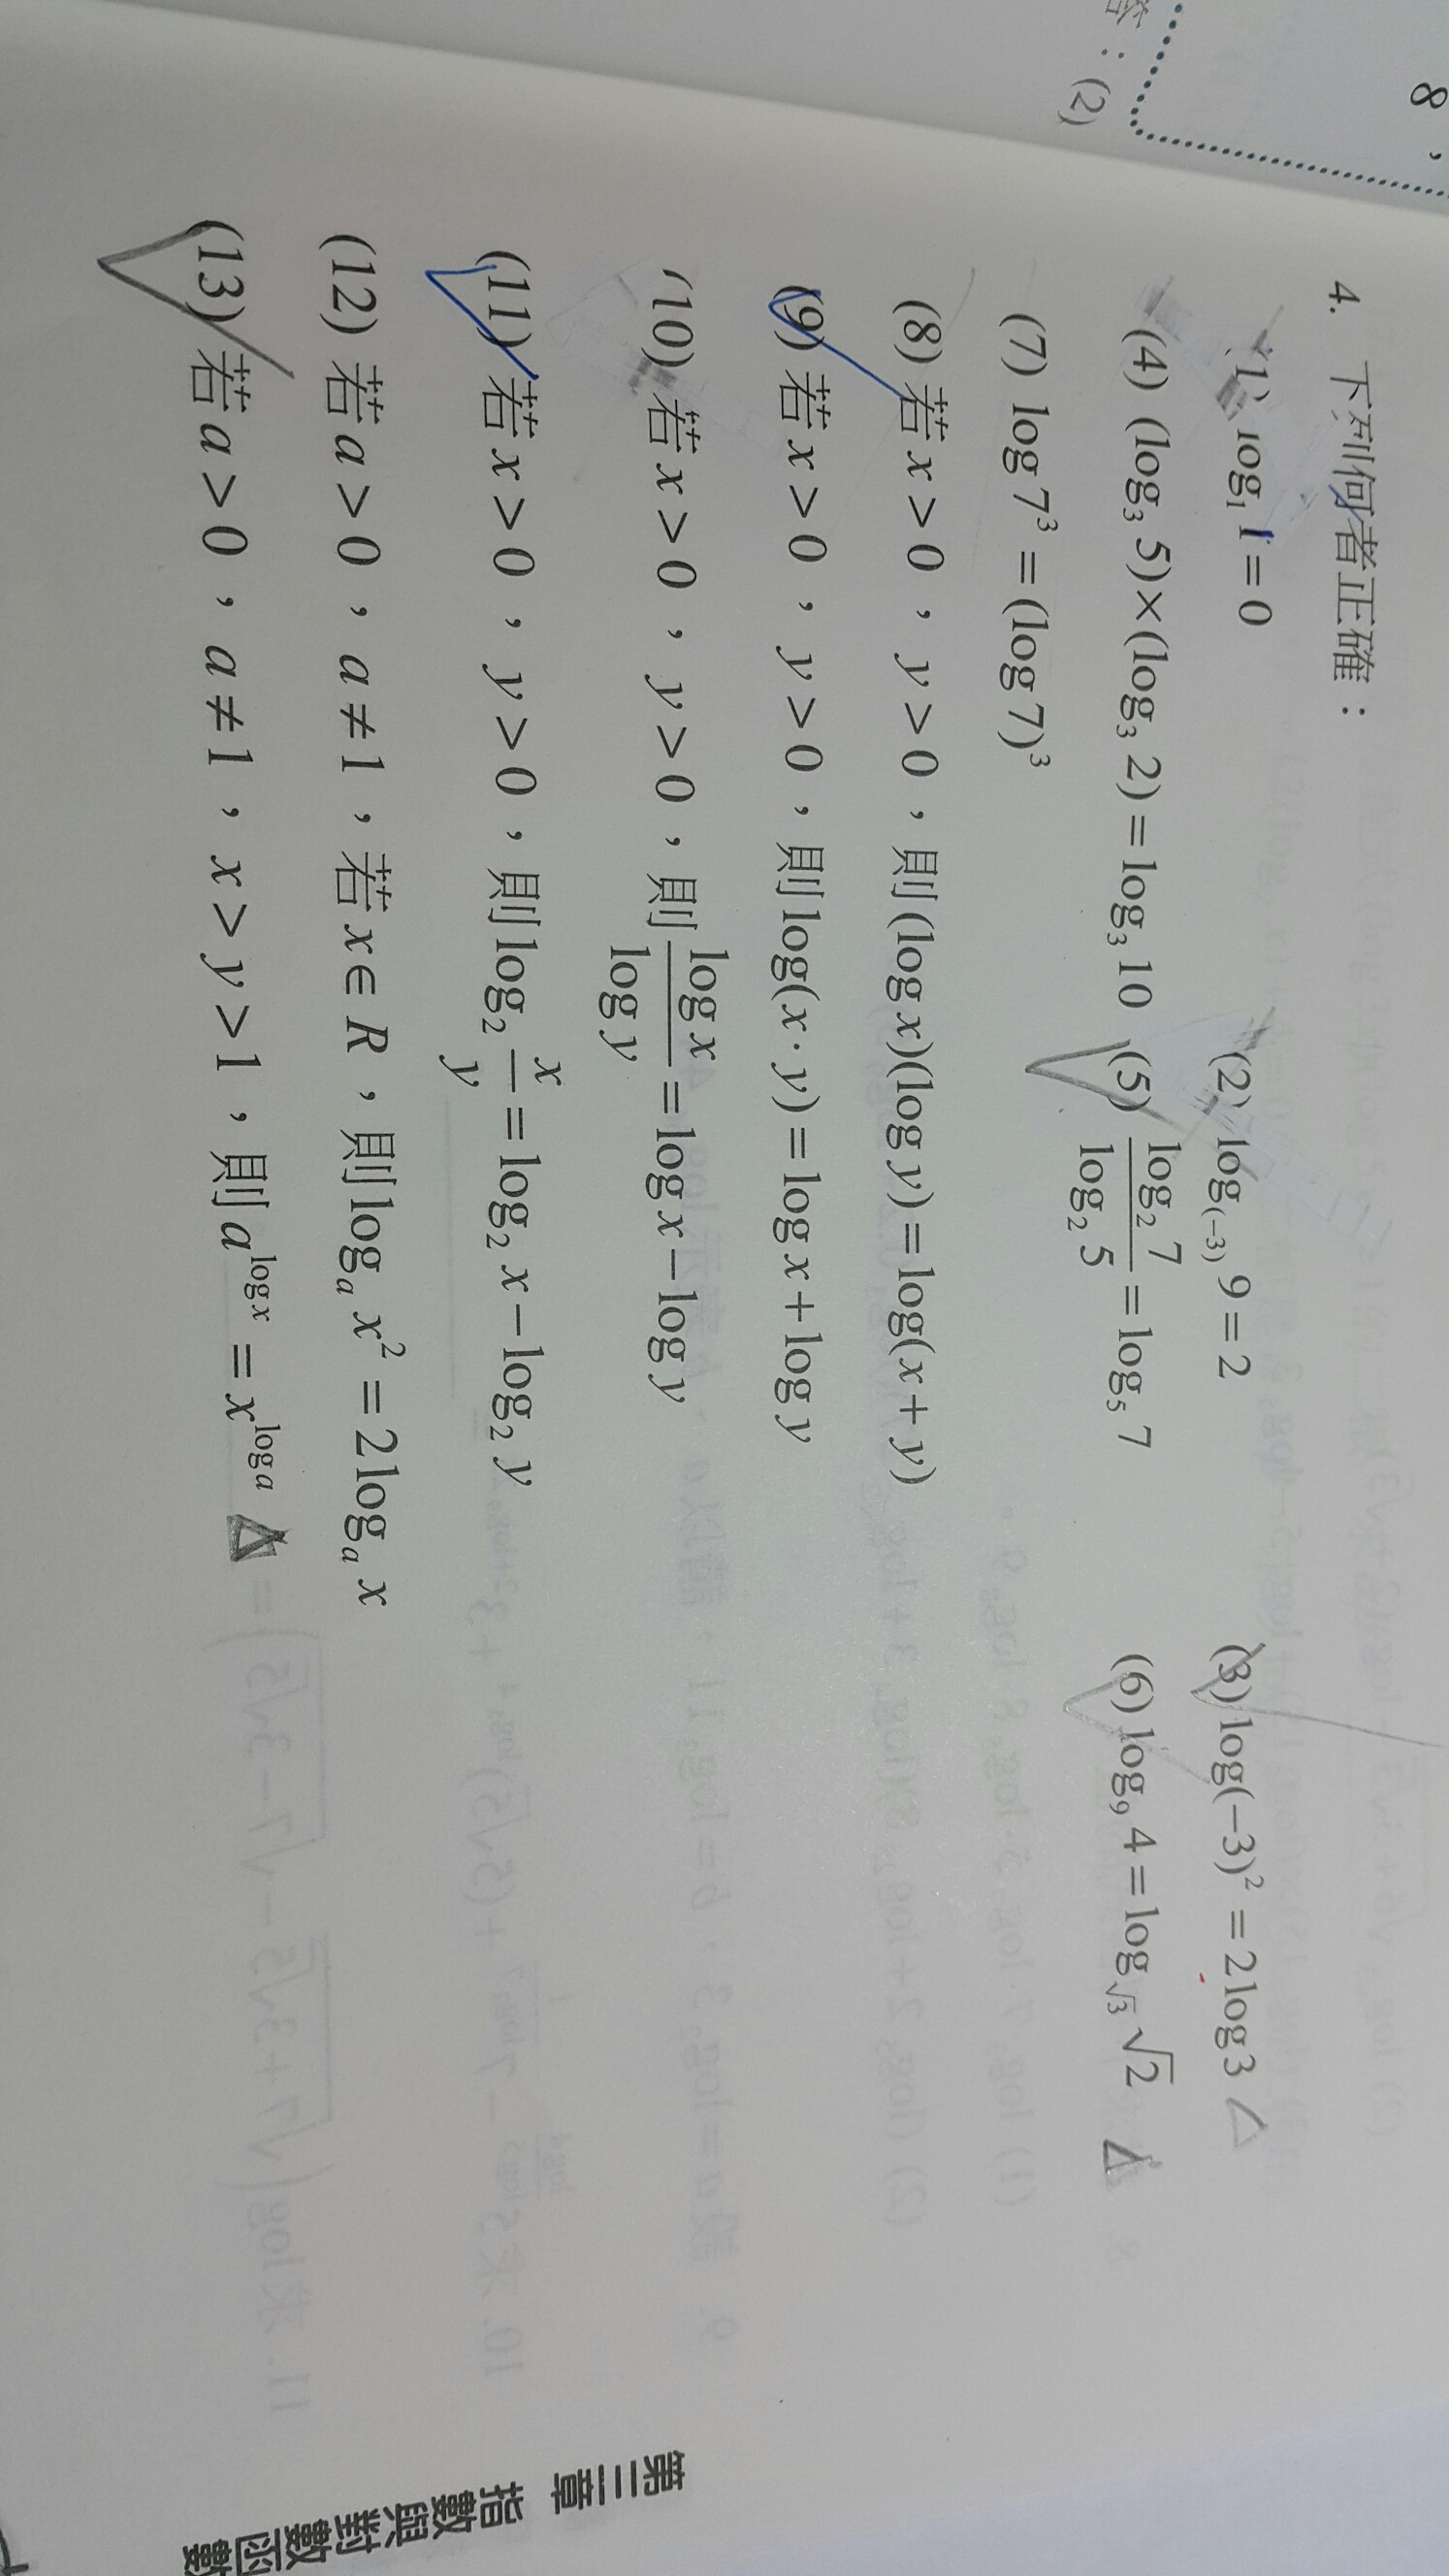 8，
答：(2)
4. 下列何者正確：
(1) log₁ 1 = 0 (2) log₍₋₃₎ 9 = 2 (3) log(−3)² = 2log3 △
(4) (log₃ 5)×(log₃ 2) = log₃ 10 (5) log₂ 7 / log₂ 5 = log₅ 7 (6) log₉ 4 = log_√3 √2 △
(7) log 7³ = (log 7)³
(8) 若 x > 0，y > 0，則 (log x)(log y) = log(x + y)
(9) 若 x > 0，y > 0，則 log(x · y) = log x + log y
(10) 若 x > 0，y > 0，則 log x / log y = log x − log y
(11) 若 x > 0，y > 0，則 log₂ x/y = log₂ x − log₂ y
(12) 若 a > 0，a ≠ 1，若 x ∈ R，則 logₐ x² = 2 logₐ x
(13) 若 a > 0，a ≠ 1，x > y > 1，則 a^(log x) = x^(log a) △
第三章 指數與對數函數